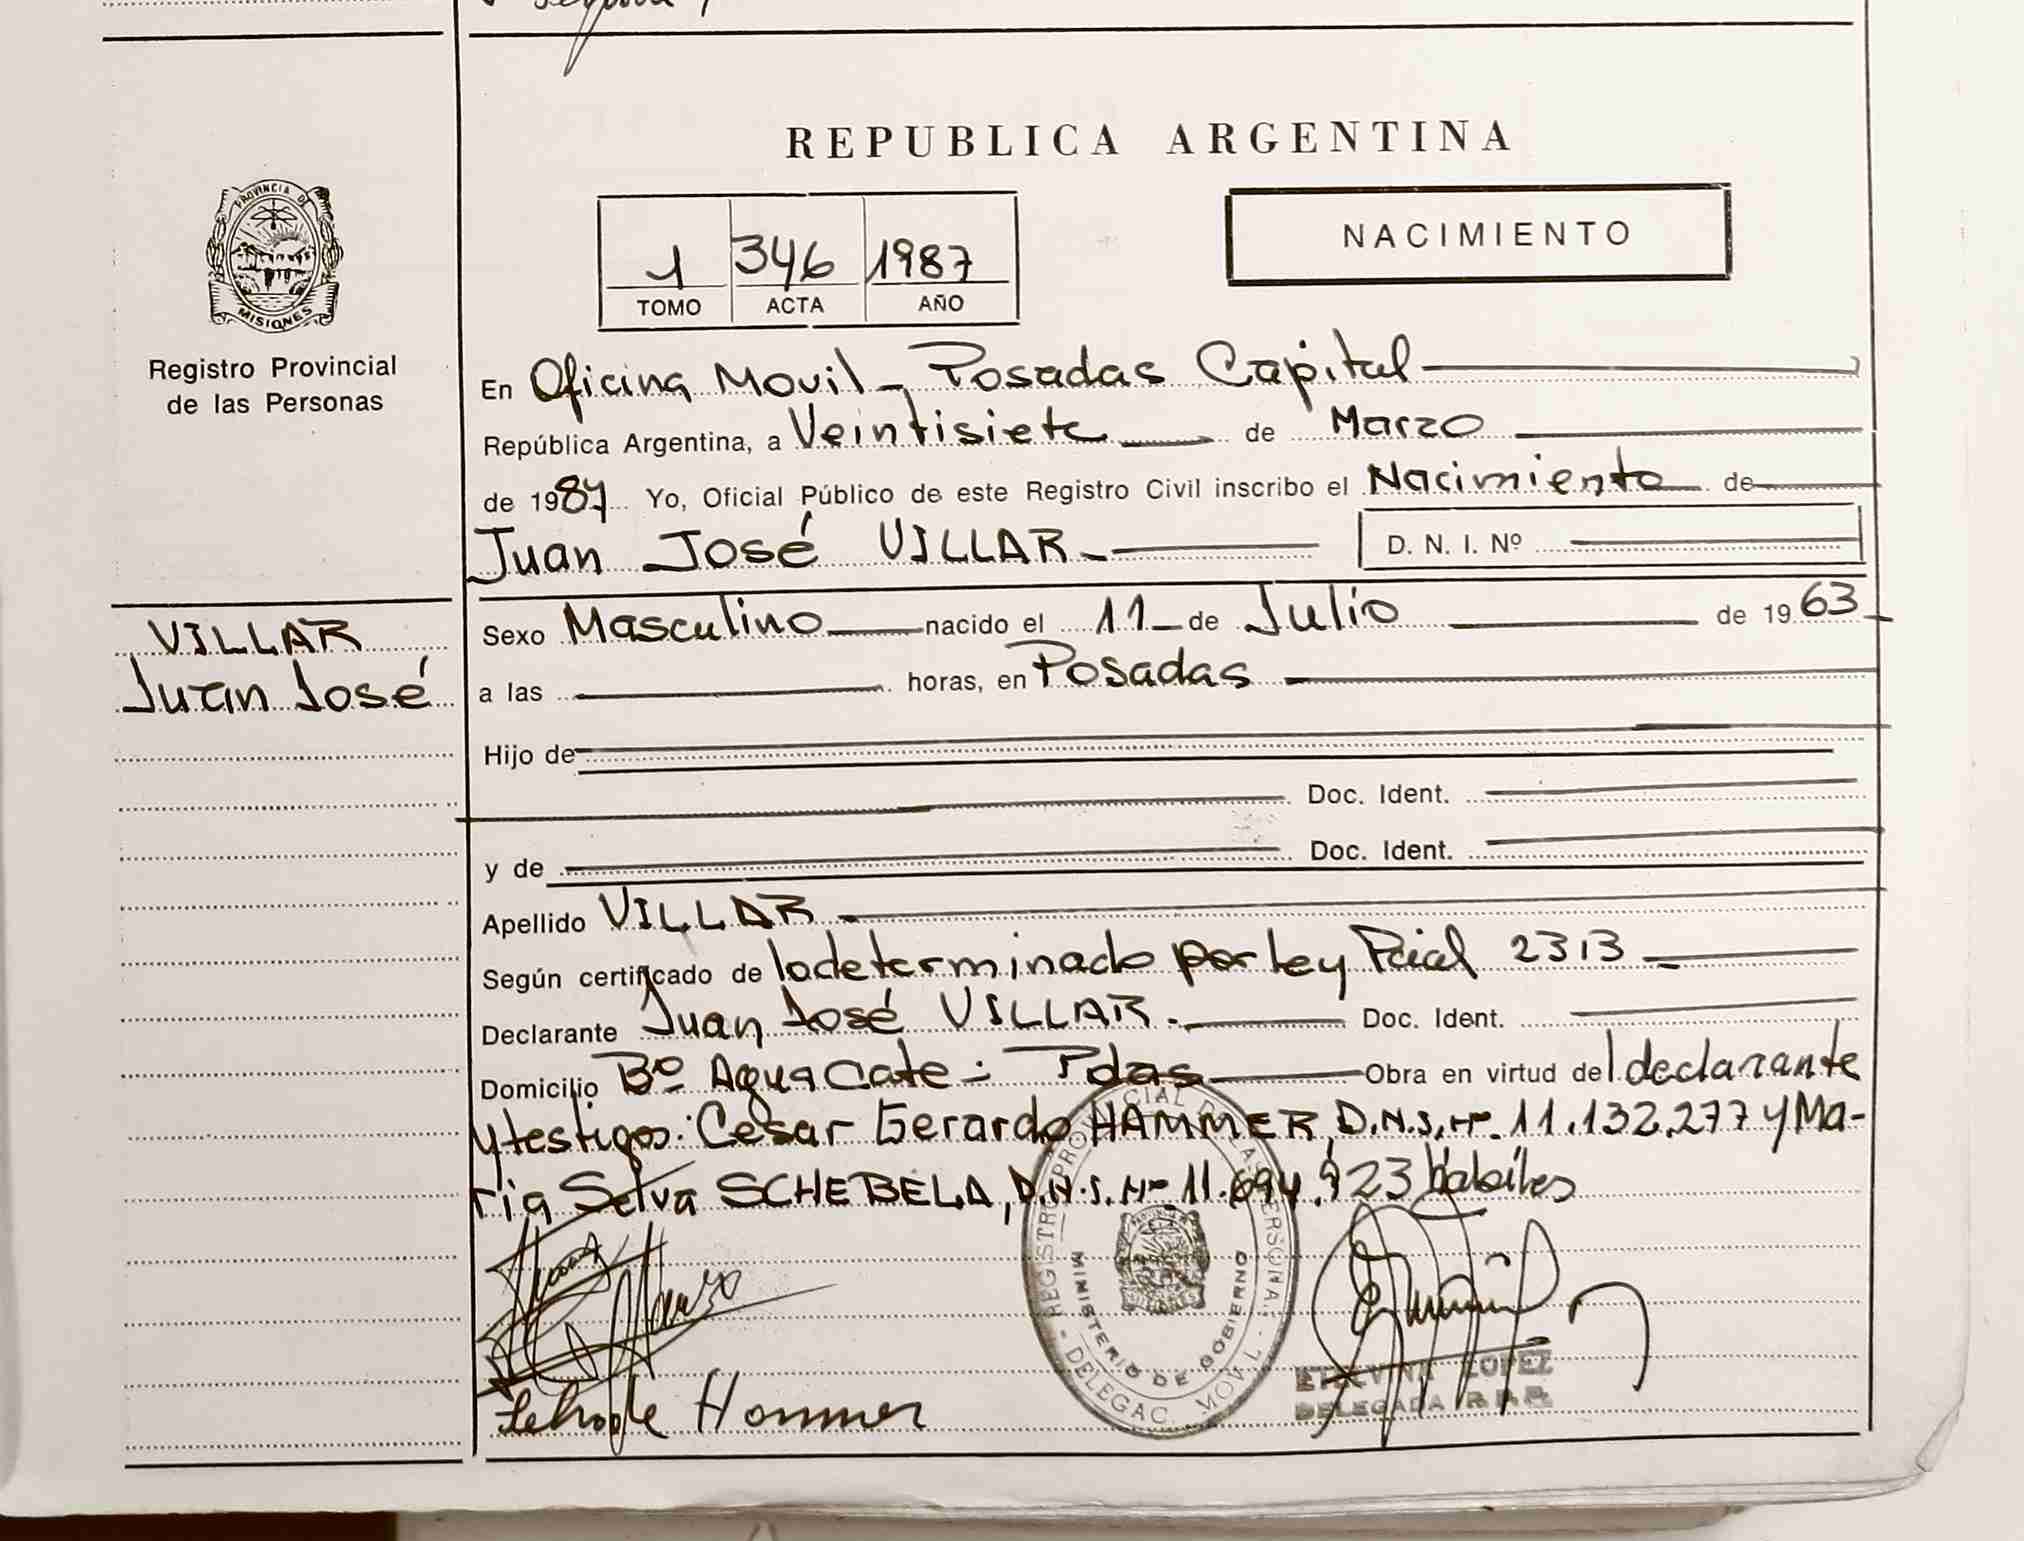 REPUBLICA ARGENTINA
PROVINCIA DE
MISIONES
Registro Provincial
de las Personas
1 346 1987
TOMO ACTA AÑO
NACIMIENTO
En Oficina Movil - Posadas Capital
República Argentina, a Veintisiete de Marzo
de 1987 Yo, Oficial Público de este Registro Civil inscribo el Nacimiento de
Juan José VILLAR D. N. I. Nº
VILLAR
Juan José
Sexo Masculino nacido el 11 de Julio de 1963
a las horas, en Posadas
Hijo de
Doc. Ident.
y de Doc. Ident.
Apellido VILLAR
Según certificado de lo determinado por ley Pcial 2313
Declarante Juan José VILLAR. Doc. Ident.
Domicilio Bº Aguacate - Pdas Obra en virtud del declarante
y testigos: Cesar Gerardo HAMMER, D.N.I. Nº 11.132.277 y Ma-
ria Selva SCHEBELA, D.N.I. Nº 11.694. 23 habiles
Hammer
REGISTRO PROVINCIAL DE LAS PERSONAS
MINISTERIO DE GOBIERNO
DELEGAC. MOVIL
ETELVINA LOPEZ
DELEGADA R.P.P.